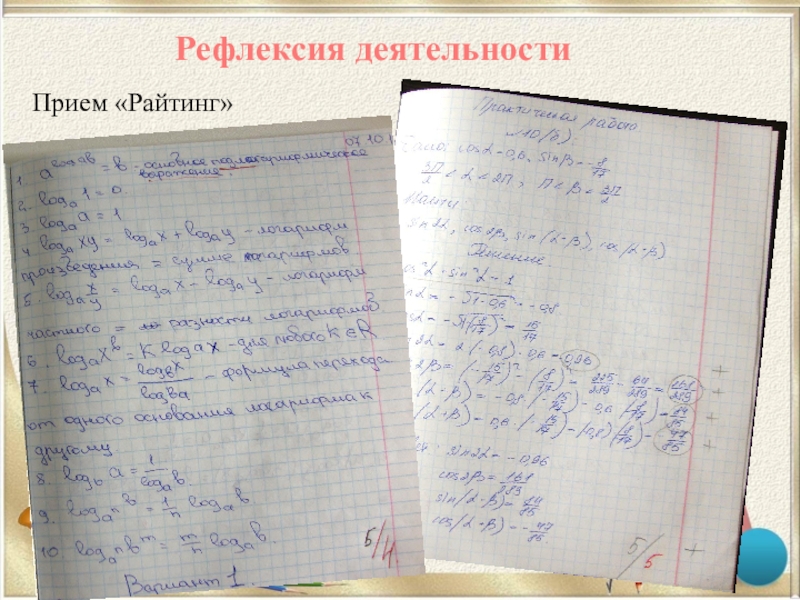 Рефлексия деятельности
Прием «Райтинг»
07.10.
1. a^{log_a b} = b - основное логарифмическое
выражение.
2. log_a 1 = 0.
3. log_a a = 1
4. log_a xy = log_a x + log_a y - логарифм
произведения = сумме логарифмов
5. log_a x/y = log_a x - log_a y - логарифм
частного = разности логарифмов
6. log_a x^b = K log_a x - для любого K ∈ R
7. log_a x = log_b x / log_b a - формула перехода
от одного основания логарифма к
другому.
8. log_b a = 1 / log_a b
9. log_{a^n} b = 1/n log_a b
10. log_{a^n} b^m = m/n log_a b.
Вариант 1.
5/4
Практическая работа
№10(б):
Дано: cosα = 0,6, sinβ = -8/17
3П/2 < α < 2П, П < β < 3П/2
Найти:
sin2α, cos2β, sin(α-β), cos(α-β)
Решение
= -√1-0,6² = -0,8
= 15/17
2α = 2·(-0,8)·0,6 = -0,96 +
2β = (-15/17)² - (8/17)² = 225/289 - 64/289 = 161/289 +
(α-β) = -0,8·(-15/17) - 0,6·(8/17) = 84/85 +
(α-β) = 0,6·(-15/17) -(0,8)(8/17) = +
sin2α = -0,96
cos2β = 161/289
sin(α-β) = 84/85
cos(α-β) = -77/85. +
5/5